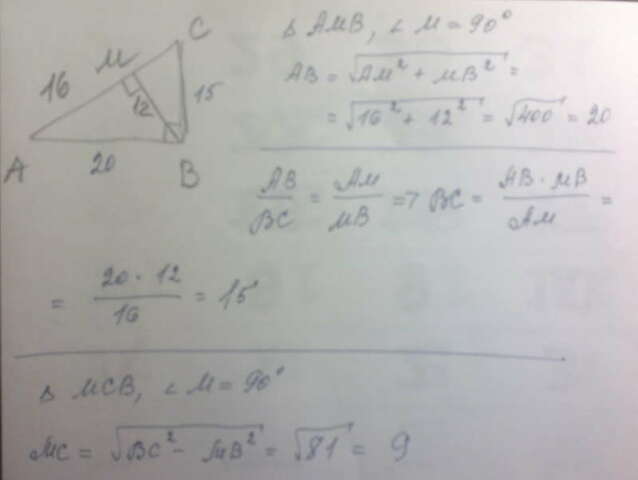 C
M
16
12
15
A
20
B
Δ AMB, ∠ M = 90°
AB = √(AM² + MB²) =
= √(16² + 12²) = √400 = 20
AB/BC = AM/MB => BC = AB · MB/AM =
= 20 · 12/16 = 15
Δ MCB, ∠ M = 90°
MC = √(BC² - MB²) = √81 = 9